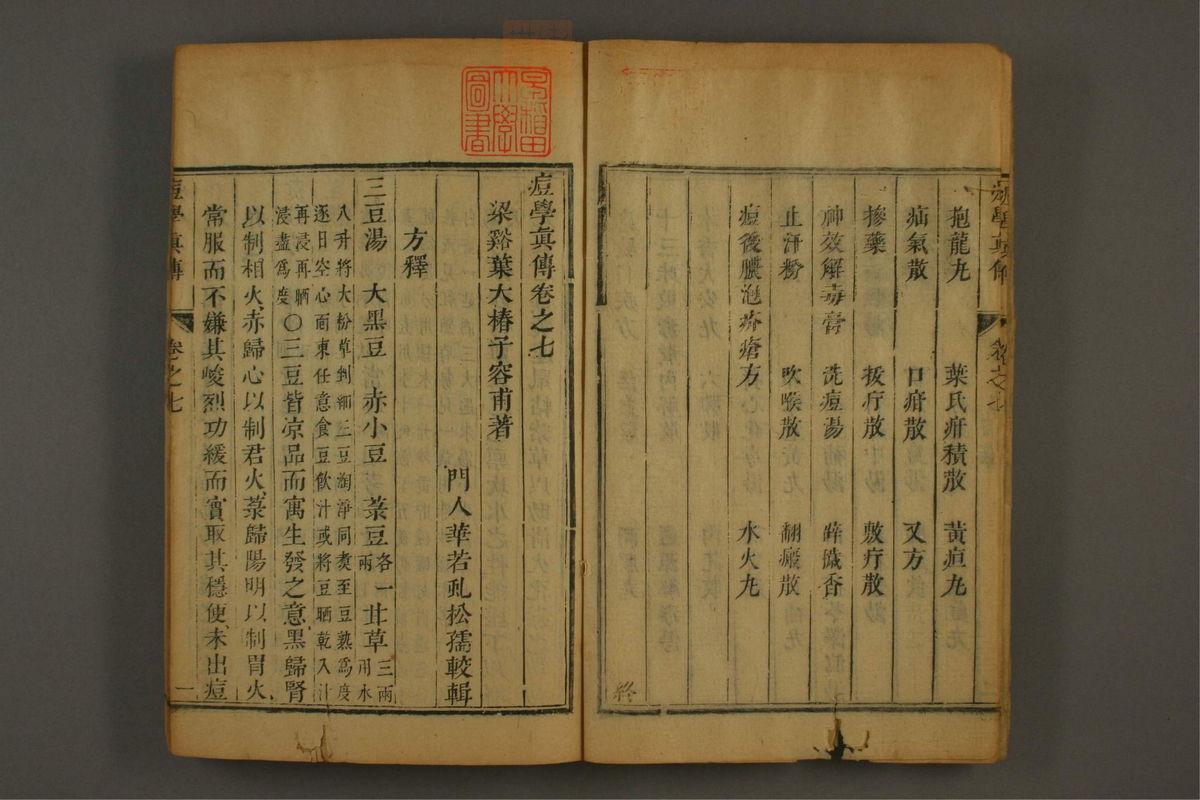 抱龍九　葉氏疳積散　黃疸九
疝氣散　口疳散　又方
摻藥　拔疔散　敷疔散
神效解毒膏　洗痘湯　辟穢香
止汗粉　吹喉散　翻瘢散
痘後膿泡疥瘡方　水火九
終
早稻田大學圖書
痘學眞傳卷之七
梁谿葉大椿子容甫著
門人華若虬松孺較輯
方釋
三豆湯　大黑豆　赤小豆　菉豆各一兩　甘草三兩用水
八升將大粉草剉細三豆淘淨同煑至豆熟爲度
逐日空心面東任意食豆飲汁或將豆晒乾入汁
再浸再晒浸盡爲度〇三豆皆凉品而寓生發之意黑歸腎
以制相火赤歸心以制君火菉歸陽明以制胃火
常服而不嫌其峻烈功緩而實取其穩便未出痘
痘學眞傳　卷之七　一